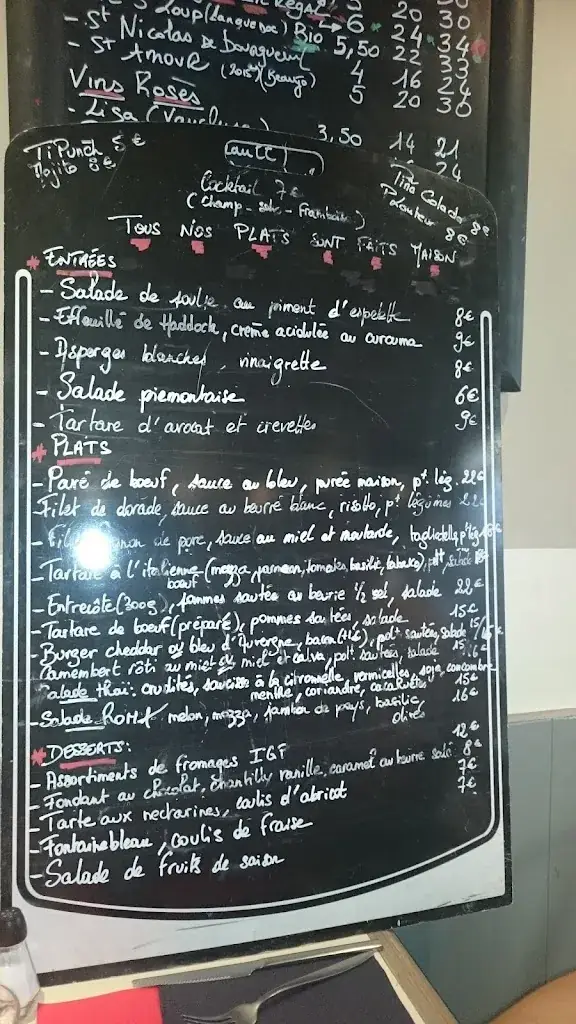 Loup (Languedoc) Bio 6 20 30
- St Nicolas de bourgueil 5,50 24 34
- St Amour (2015) (Beaujo) 4 22 33
5 16 24
20 30
Vins Rosés
- Lisa (Vaucluse) 3,50 14 21
24
Ti Punch 5€
Mojito 8€
Cocktail 7€
(Champ - - Framboise)
Piña Colada 8€
Planteur 8€
Tous Nos Plats sont faits Maison
* Entrées
- Salade de poulpe au piment d'espelette 8€
- Effeuillé de Haddock, crème acidulée au curcuma 9€
- Asperges blanches, vinaigrette 8€
- Salade piemontaise 6€
- Tartare d'avocat et crevettes 9€
* Plats
- Pavé de boeuf, sauce au bleu, purée maison, pt. lég. 22€
- Filet de dorade, sauce au beurre blanc, risotto, pt légumes 22
- Filet mignon de porc, sauce au miel et moutarde, tagliatelle, pt lég
- Tartare à l'italienne (mozza, parmesan, tomates, basilic, tabasco), salade
boeuf
- Entrecôte (300g), pommes sautées au beurre 1/2 sel, salade 22€
- Tartare de boeuf (préparé), pommes sautées, salade 15€
- Burger cheddar ou bleu d'Auvergne, bacon (+1€), pot sautées, salade
- Camembert rôti au miel ou miel et calva, pot sautées, salade
- Salade thaï: crudités, saucisse à la citronnelle, vermicelles, soja, concombre
menthe, coriandre, cacahuètes 15€
- Salade Rom melon, mozza, jambon de pays, basilic 16€
olives
* Desserts:
- Assortiments de fromages IGP 12€
- Fondant au chocolat, chantilly vanille, caramel au beurre salé 8€
- Tarte aux nectarines, coulis d'abricot 7€
- Fontainebleau, coulis de fraise 7€
- Salade de fruits de saison